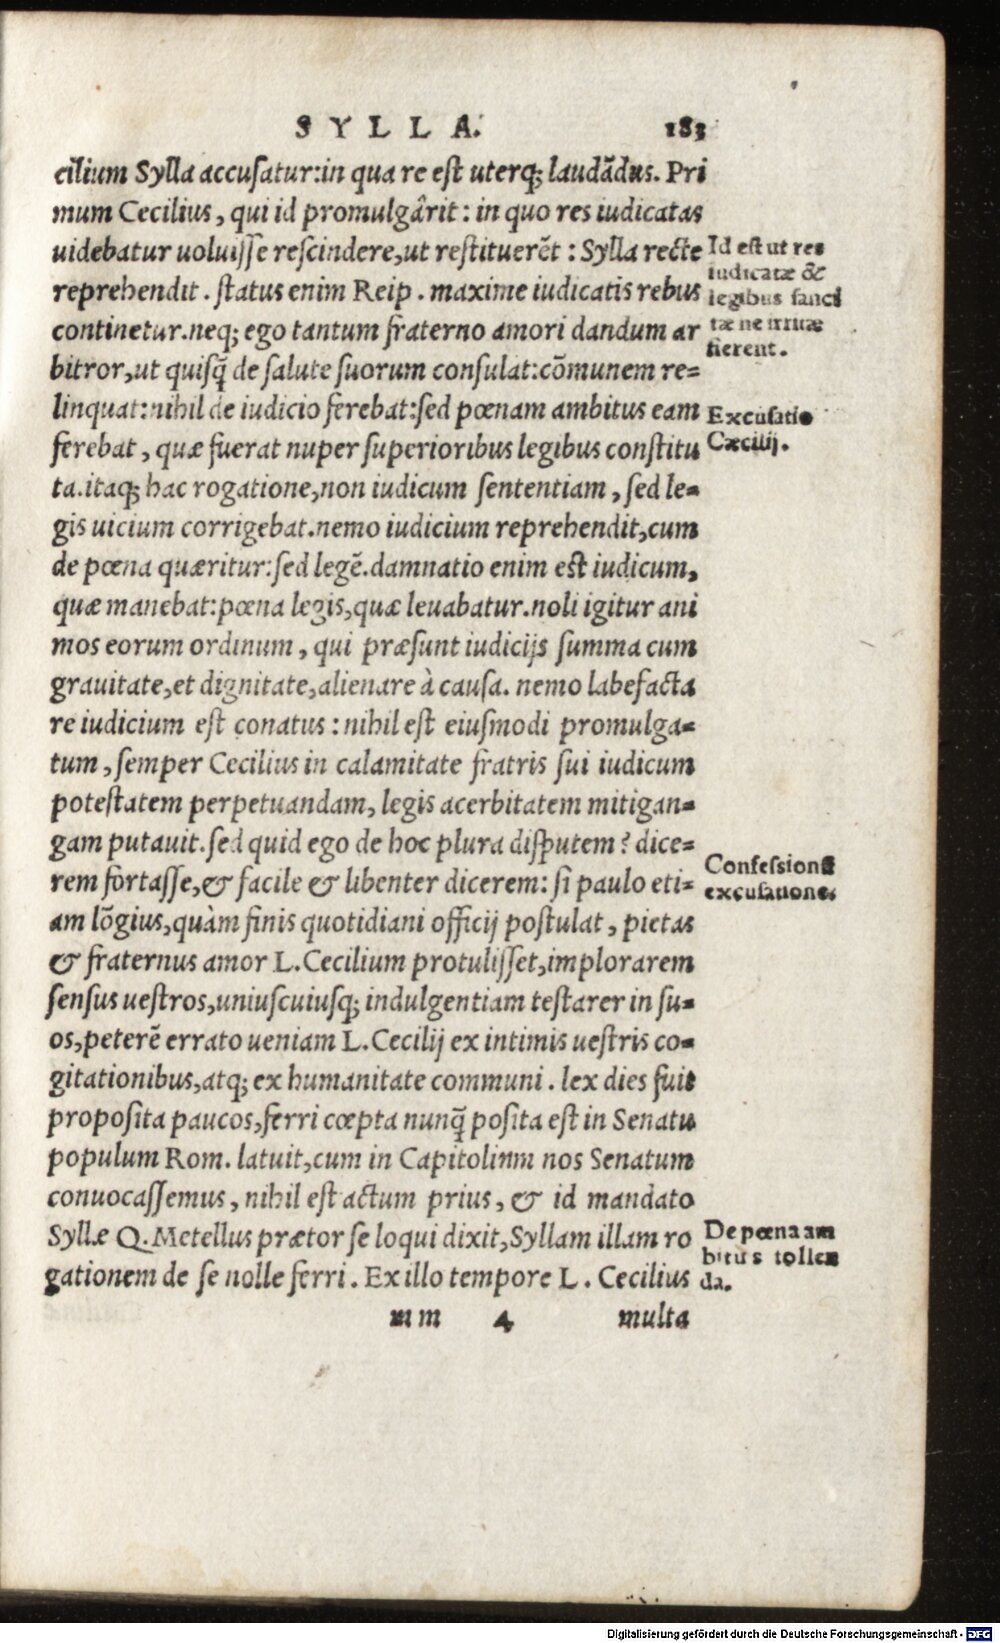 SYLLA. 183
cilium Sylla accusatur:in qua re est uterq; laudādus. Pri
mum Cecilius, qui id promulgârit: in quo res iudicatas
uidebatur uoluisse rescindere,ut restituerēt: Sylla recte
reprehendit. status enim Reip. maxime iudicatis rebus
continetur.neq; ego tantum fraterno amori dandum ar
bitror,ut quisq̃ de salute suorum consulat:cōmunem re=
linquat:nihil de iudicio ferebat:sed pœnam ambitus eam
ferebat, quæ fuerat nuper superioribus legibus constitu
ta.itaq; hac rogatione,non iudicum sententiam, sed le=
gis uicium corrigebat.nemo iudicium reprehendit,cum
de pœna quæritur:sed legē.damnatio enim est iudicum,
quæ manebat:pœna legis,quæ leuabatur.noli igitur ani
mos eorum ordinum, qui præsunt iudicijs summa cum
grauitate,et dignitate,alienare à causa. nemo labefacta
re iudicium est conatus: nihil est eiusmodi promulga=
tum, semper Cecilius in calamitate fratris sui iudicum
potestatem perpetuandam, legis acerbitatem mitigan=
gam putauit.sed quid ego de hoc plura disputem? dice=
rem fortasse,& facile & libenter dicerem: si paulo eti=
am lōgius,quàm finis quotidiani officij postulat, pietas
& fraternus amor L.Cecilium protulisset,implorarem
sensus uestros,uniuscuiusq; indulgentiam testarer in su=
os,peterē errato ueniam L.Cecilij ex intimis uestris co=
gitationibus,atq; ex humanitate communi. lex dies fuit
proposita paucos,ferri cœpta nunq̃ posita est in Senatu
populum Rom. latuit,cum in Capitolinm nos Senatum
conuocassemus, nihil est actum prius, & id mandato
Syllæ Q.Metellus prætor se loqui dixit,Syllam illam ro
gationem de se nolle ferri. Ex illo tempore L. Cecilius
mm 4 multa
Id est ut res
iudicatæ &
legibus sanci
tæ ne irritæ
fierent.
Excusatio
Cæcilij.
Confessione
excusatione.
De pœna am
bitus tollen
da.
Digitalisierung gefördert durch die Deutsche Forschungsgemeinschaft - DFG